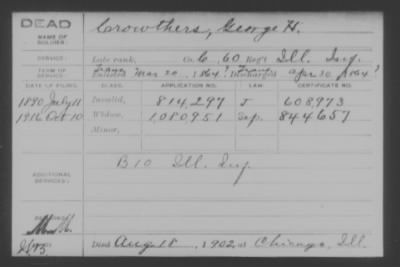 DEAD
NAME OF SOLDIER:
Crowthers, George H.
SERVICE:
Late rank, Co. C, 60 Reg't Ill. Inf.
TERM OF SERVICE:
Trans. Trans.
Enlisted Mar 20, 1864? Discharged Apr 20, 1864?
DATE OF FILING. CLASS. APPLICATION NO. LAW. CERTIFICATE NO.
1890 July 11 Invalid, 814,297 J 608,973
Oct 10 Widow, 1,080,951 844657
Minor,
ADDITIONAL SERVICES:
B 10 Ill. Inf.
Died Aug 18, 1902, at Chicago, Ill.